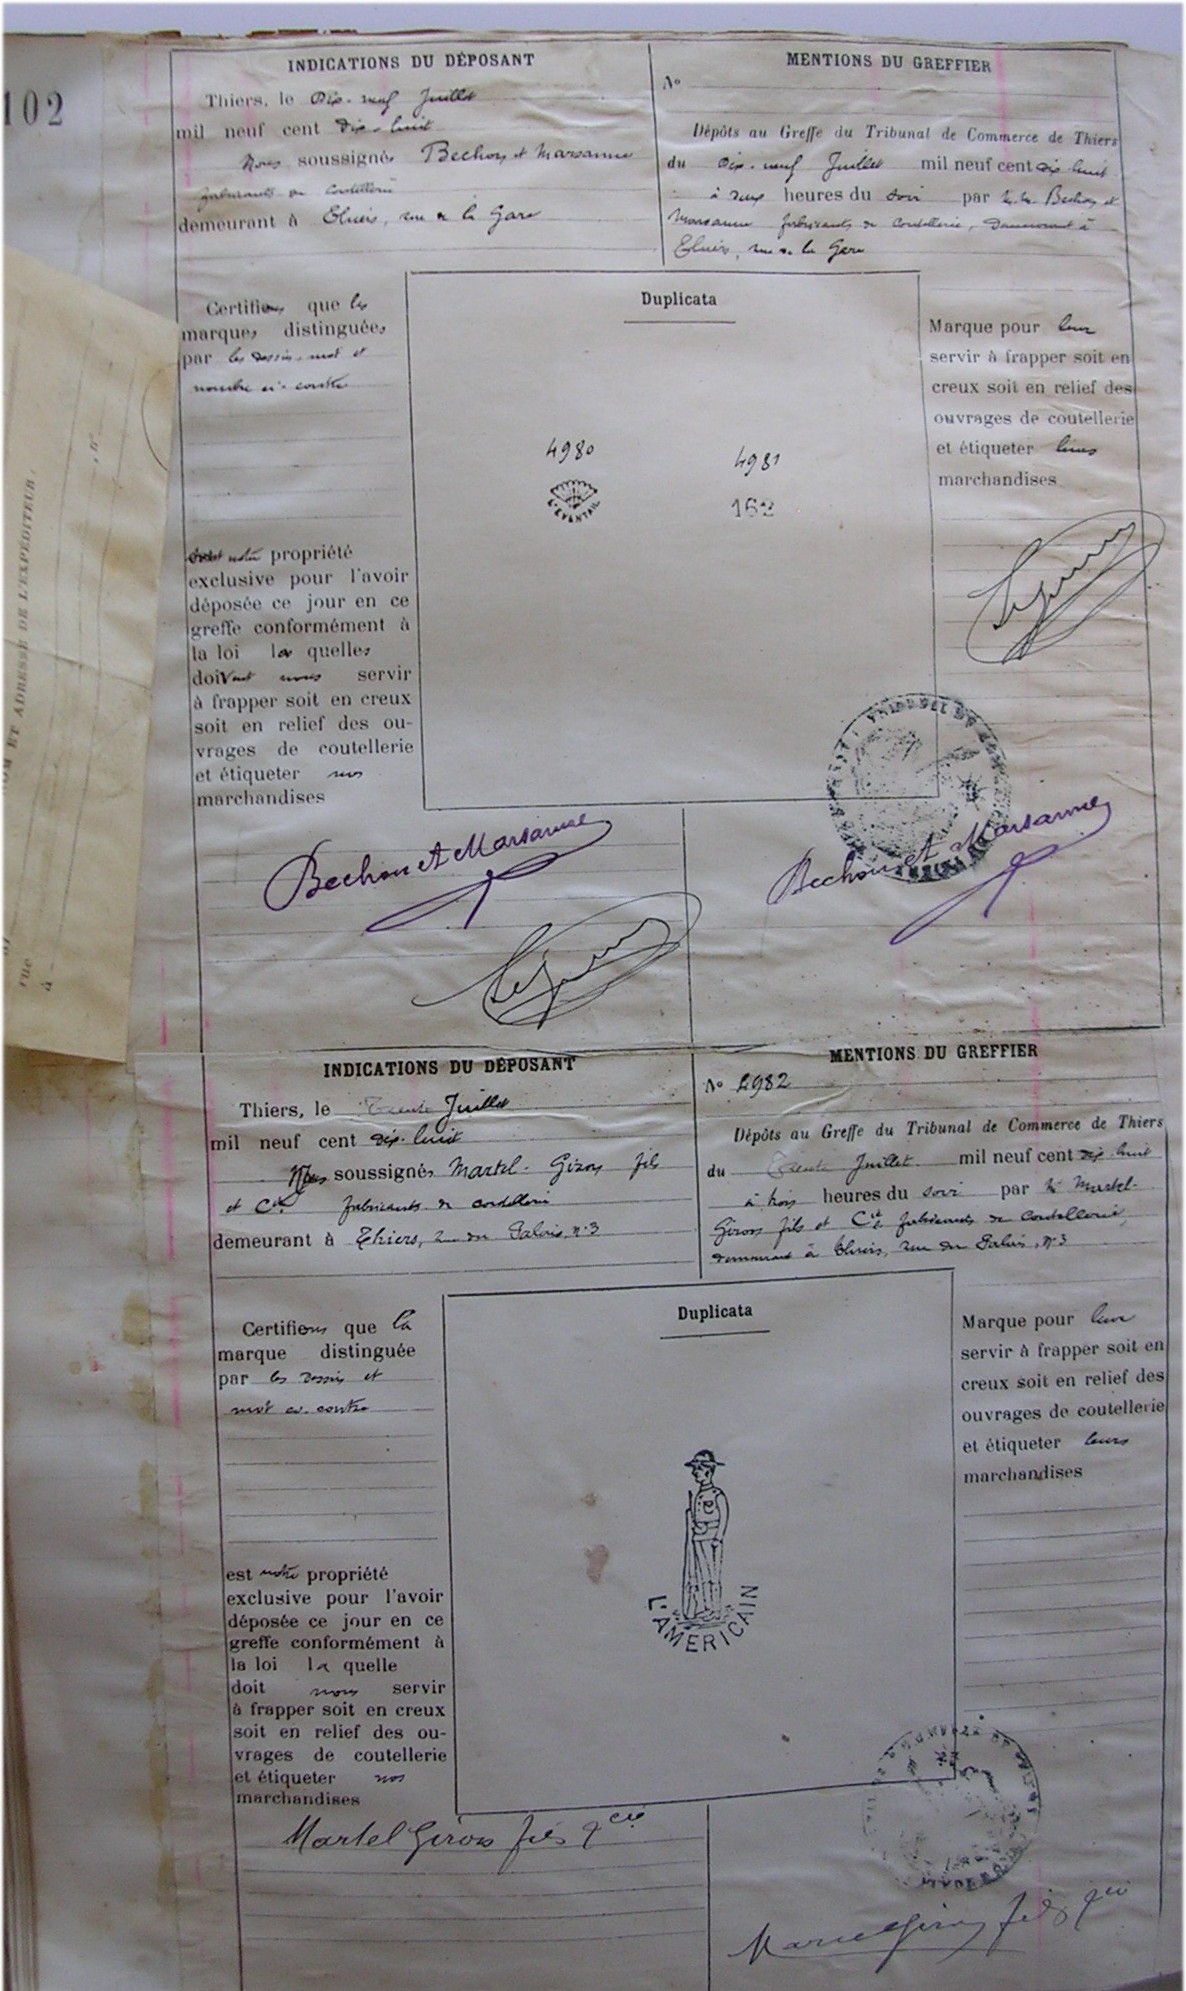 102
INDICATIONS DU DÉPOSANT
Thiers, le Dix-neuf Juillet
mil neuf cent dix-huit
Nous soussignés Bechon et Marsanne
fabricants de coutellerie
demeurant à Thiers, rue de la Gare
MENTIONS DU GREFFIER
No
Dépôts au Greffe du Tribunal de Commerce de Thiers
du Dix-neuf Juillet mil neuf cent dix-huit
à deux heures du soir par M.M. Bechon et
Marsanne fabricants de coutellerie, demeurant à
Thiers, rue de la Gare
Certifions que les
marques distinguées
par les dessin, mot et
nombre ci-contre
notre propriété
exclusive pour l'avoir
déposée ce jour en ce
greffe conformément à
la loi la quelles
doivent nous servir
à frapper soit en creux
soit en relief des ou-
vrages de coutellerie
et étiqueter nos
marchandises
Duplicata
4980
4981
L'EVENTAIL
162
Marque pour leur
servir à frapper soit en
creux soit en relief des
ouvrages de coutellerie
et étiqueter leurs
marchandises
Bechon et Marsanne
Bechon et Marsanne
NOM ET ADRESSE DE L'EXPÉDITEUR.
rue
à
INDICATIONS DU DÉPOSANT
Thiers, le Trente Juillet
mil neuf cent dix-huit
Nous soussignés Martel-Giron fils
et Cie fabricants de coutellerie
demeurant à Thiers, rue du Palais, n°3
MENTIONS DU GREFFIER
No 4982
Dépôts au Greffe du Tribunal de Commerce de Thiers
du Trente Juillet mil neuf cent dix-huit
à trois heures du soir par M Martel-
Giron fils et Cie fabricants de coutellerie,
demeurant à Thiers, rue du Palais, n°3
Certifions que la
marque distinguée
par les dessin et
mot ci-contre
est notre propriété
exclusive pour l'avoir
déposée ce jour en ce
greffe conformément à
la loi la quelle
doit nous servir
à frapper soit en creux
soit en relief des ou-
vrages de coutellerie
et étiqueter nos
marchandises
Duplicata
L'AMERICAIN
Marque pour leur
servir à frapper soit en
creux soit en relief des
ouvrages de coutellerie
et étiqueter leurs
marchandises
Martel Giron fils & Cie
Martel Giron fils & Cie